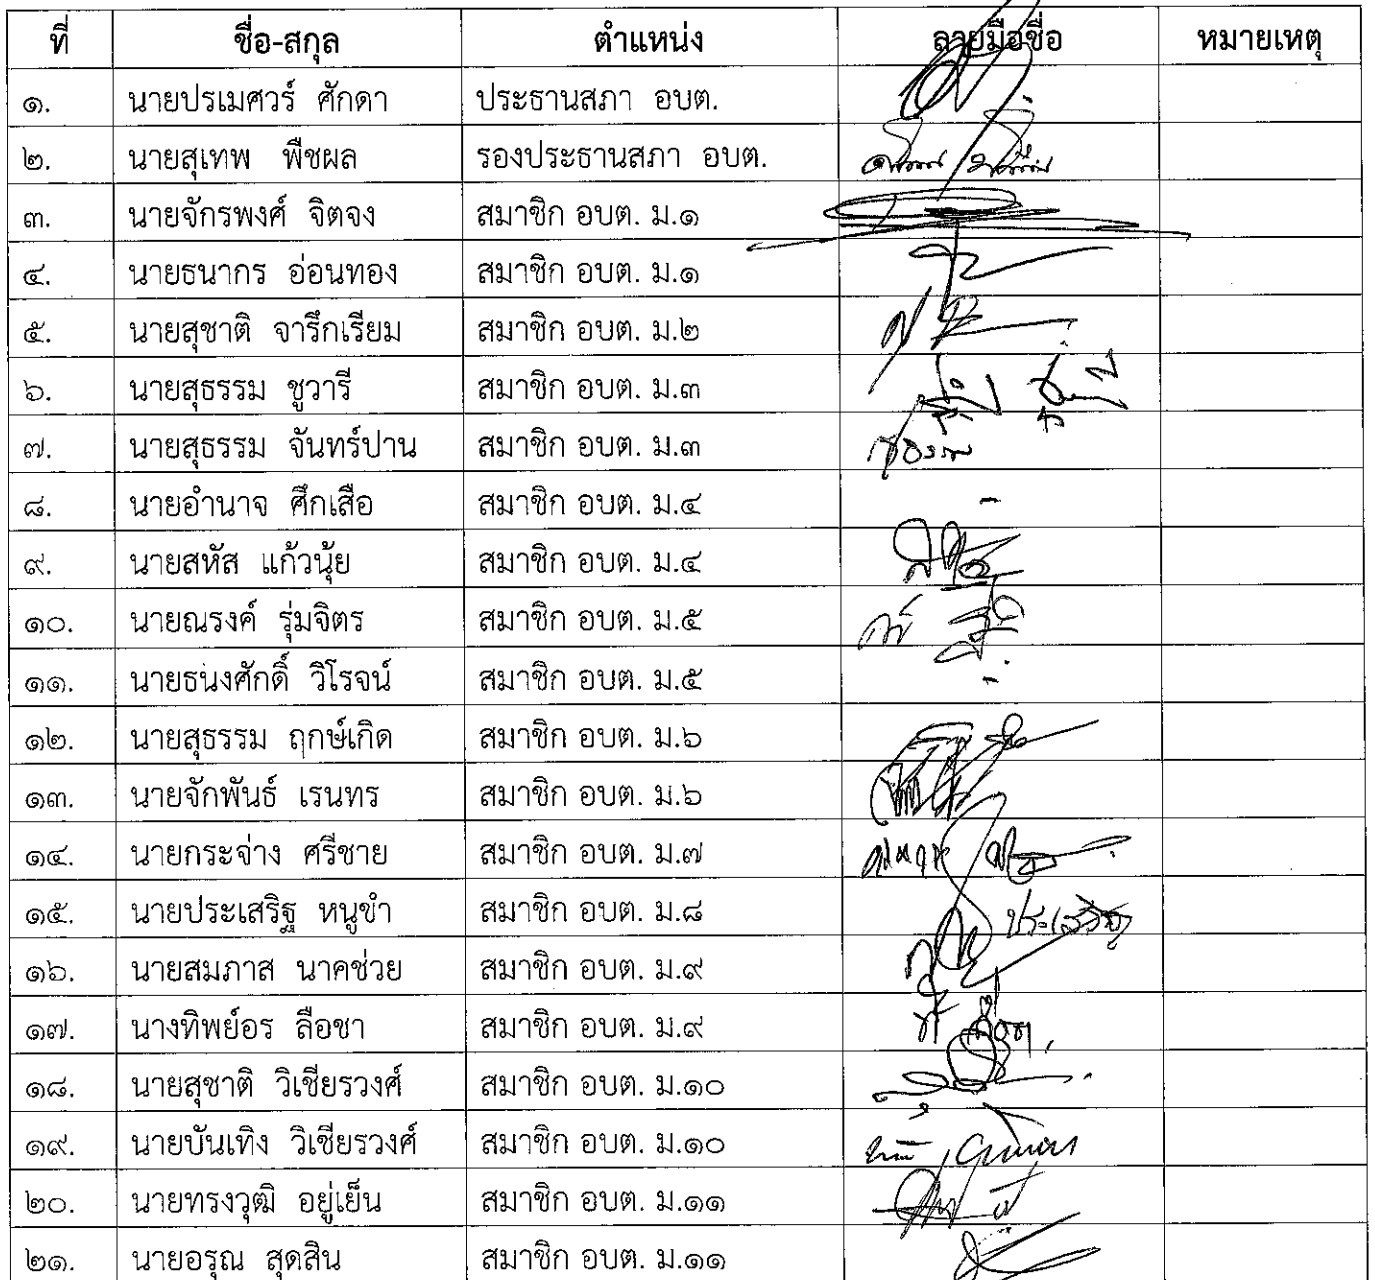 ที่ ชื่อ-สกุล ตำแหน่ง ลายมือชื่อ หมายเหตุ
๑. นายปรเมศวร์ ศักดา ประธานสภา อบต.
๒. นายสุเทพ พืชผล รองประธานสภา อบต.
๓. นายจักรพงศ์ จิตจง สมาชิก อบต. ม.๑
๔. นายธนากร อ่อนทอง สมาชิก อบต. ม.๑
๕. นายสุชาติ จารึกเรียม สมาชิก อบต. ม.๒
๖. นายสุธรรม ชูวารี สมาชิก อบต. ม.๓
๗. นายสุธรรม จันทร์ปาน สมาชิก อบต. ม.๓
๘. นายอำนาจ ศึกเสือ สมาชิก อบต. ม.๔ -
๙. นายสหัส แก้วนุ้ย สมาชิก อบต. ม.๔
๑๐. นายณรงค์ รุ่มจิตร สมาชิก อบต. ม.๕
๑๑. นายธนงศักดิ์ วิโรจน์ สมาชิก อบต. ม.๕ -
๑๒. นายสุธรรม ฤกษ์เกิด สมาชิก อบต. ม.๖
๑๓. นายจักพันธ์ เรนทร สมาชิก อบต. ม.๖
๑๔. นายกระจ่าง ศรีชาย สมาชิก อบต. ม.๗
๑๕. นายประเสริฐ หนูขำ สมาชิก อบต. ม.๘
๑๖. นายสมภาส นาคช่วย สมาชิก อบต. ม.๙
๑๗. นางทิพย์อร ลือชา สมาชิก อบต. ม.๙
๑๘. นายสุชาติ วิเชียรวงศ์ สมาชิก อบต. ม.๑๐
๑๙. นายบันเทิง วิเชียรวงศ์ สมาชิก อบต. ม.๑๐
๒๐. นายทรงวุฒิ อยู่เย็น สมาชิก อบต. ม.๑๑
๒๑. นายอรุณ สุดสิน สมาชิก อบต. ม.๑๑